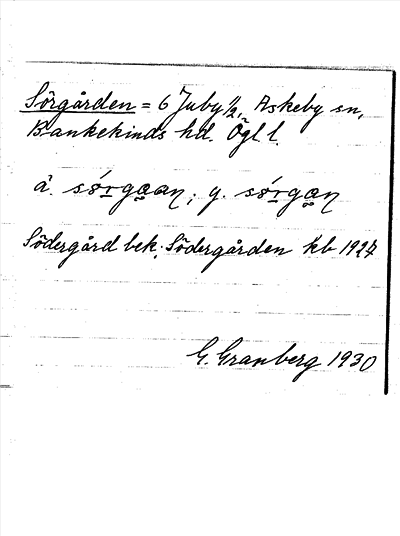 Sörgården = 6 Juby 1/2, Askeby sn,
Bankekinds hd. Ögl l.
ä. sǿrgaan; y. sǿrgan
Södergård bek; Södergården kb 1927
G. Granberg 1930